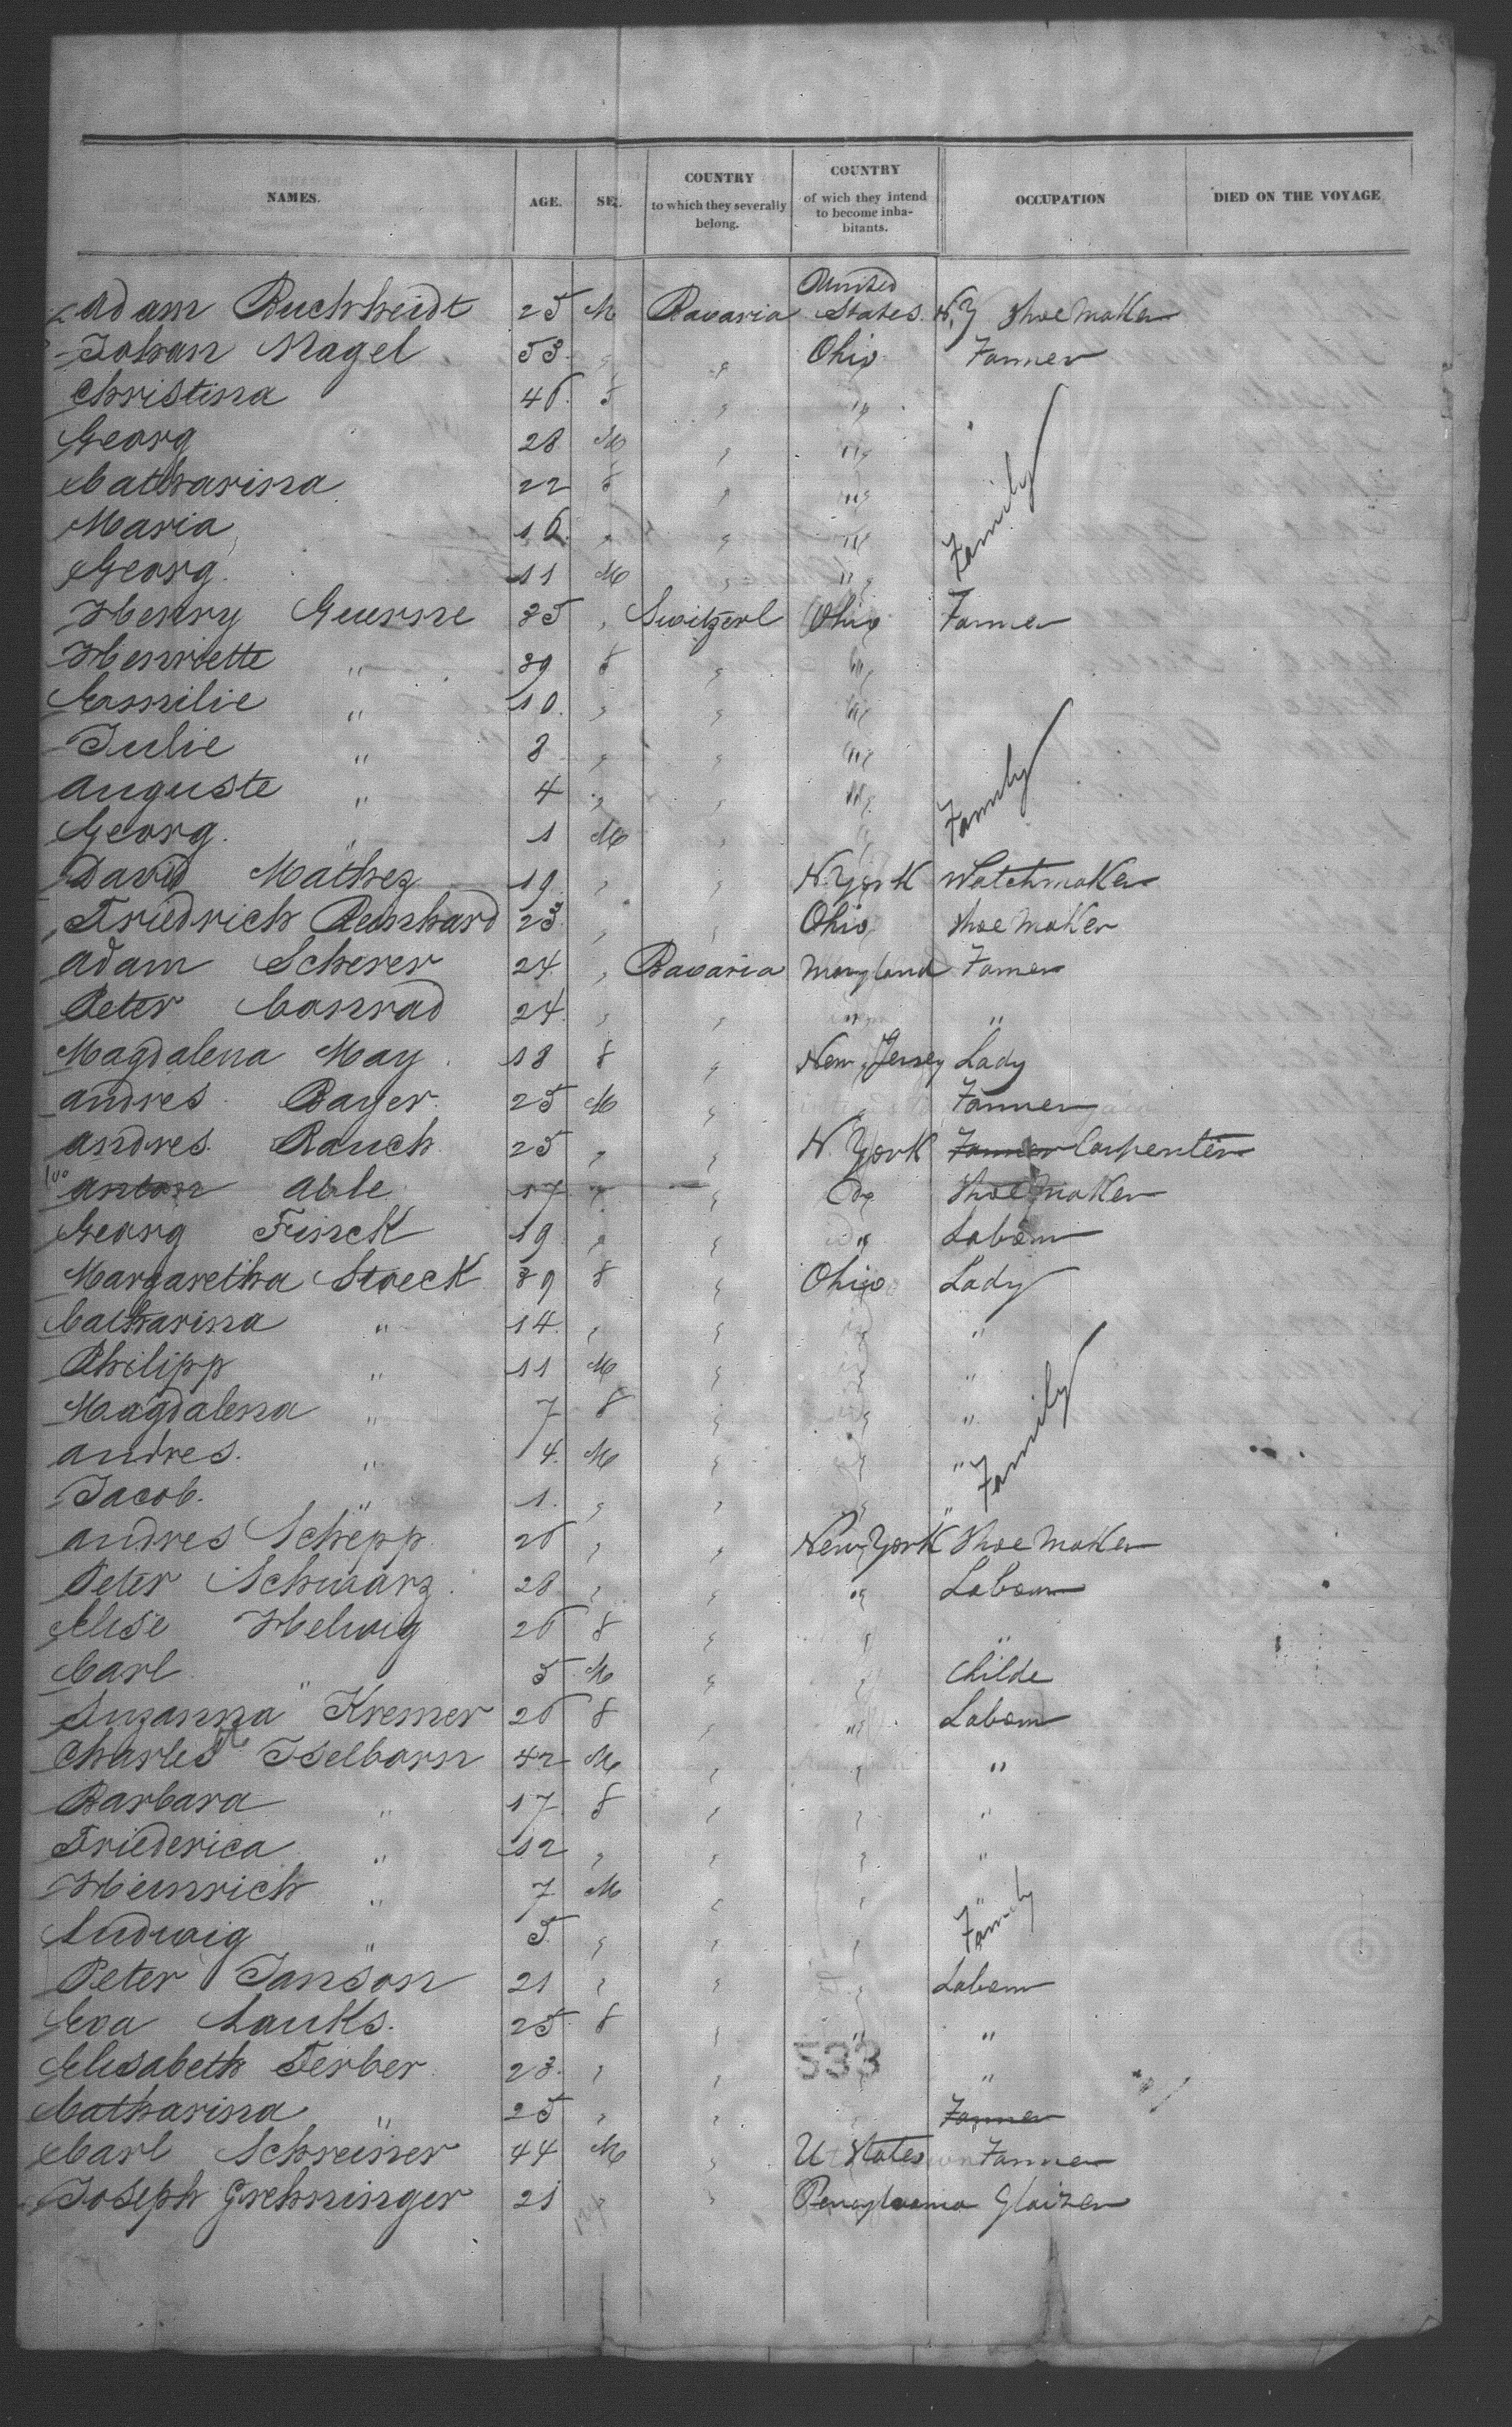 NAMES. AGE. SEX. COUNTRY to which they severally belong. COUNTRY of wich they intend to become inhabitants. OCCUPATION DIED ON THE VOYAGE
United
Adam Buchheidt 25 M Bavaria States N.Y Shoemaker
Johan Nagel 53 " " Ohio Farmer
Christina 46 f " "
Georg 28 M " "
Catharina 22 f " "
Maria 16 " " " Family
Georg 11 M " "
Henry Guerne 35 " Switzerl Ohio Farmer
Henriette " 39 f " "
Emilie " 10 " " "
Julie " 8 " " "
Auguste " 4 " " " Family
Georg " 1 M " "
David Mathez 19 " " N. York Watchmaker
Friedrich Reinhard 23 " " Ohio Shoemaker
Adam Scherer 24 " Bavaria Maryland Farmer
Peter Conrad 24 " " " "
Magdalena May 18 f " New Jersey Lady
Andres Bayer 25 M " Farmer
Andres Rauch 25 " " N. York Farmer Carpenter
100 Anton Able 17 " " Do Shoemaker
Georg Finck 19 " " " Labour
Margaretha Stoeck 39 f " Ohio Lady
Catharina " 14 " " " "
Philipp " 11 M " " "
Magdalena " 7 f " " "
Andres " 4 M " " " Family
Jacob " 1 " " " "
Andres Schepp 26 " " New York Shoemaker
Peter Schwarz 28 " " " Labour
Elise Helwig 26 f " " "
Carl " 5 M " " Childe
Suzanna Kremer 26 f " " Labour
Charles Iselborn 42 M " " "
Barbara " 17 f " " "
Friederica " 12 " " " "
Heinrich " 7 M " " "
Ludwig " 5 " " " Family
Peter Janson 21 " " " Labour
Eva Lauks 25 f " " "
Elisabeth Ferber 23 " " " "
533
Catharina " 25 " " " Farmer
Carl Schreiner 44 M " U States Farmer
Joseph 21 " " Pensylvania Glaizer